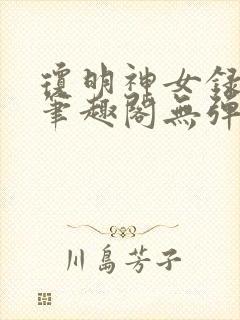 瓊明神女錄
筆趣閣無彈
川島芳子